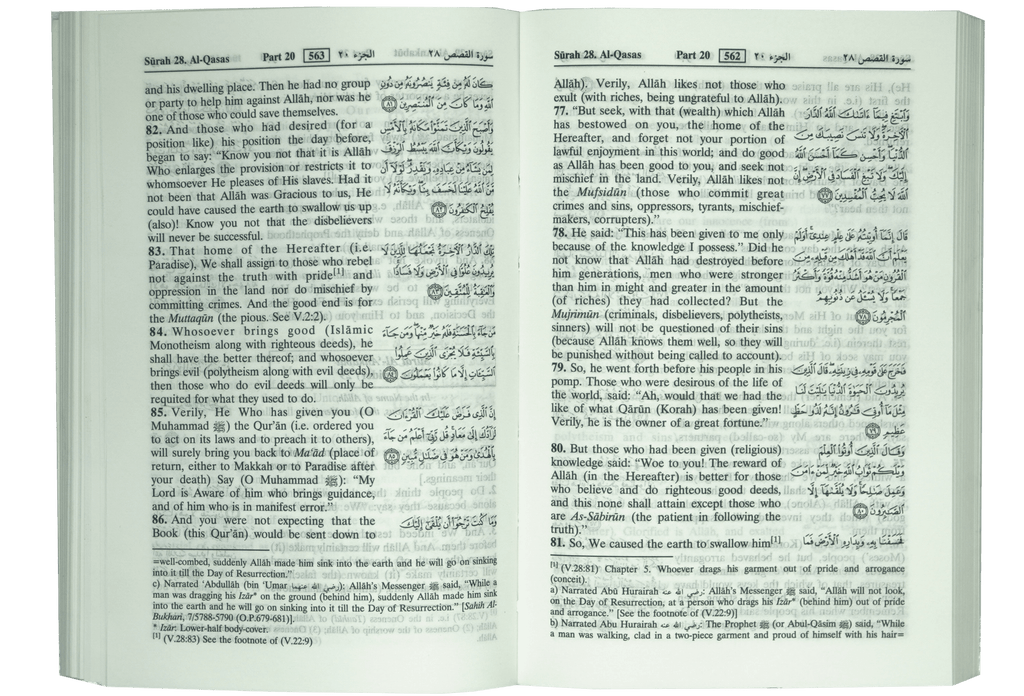 Sūrah 28. Al-Qasas Part 20 562 الجزء ٢٠ سورة القصص ٢٨
Allāh). Verily, Allāh likes not those who
exult (with riches, being ungrateful to Allāh).
77. “But seek, with that (wealth) which Allāh
has bestowed on you, the home of the
Hereafter, and forget not your portion of
lawful enjoyment in this world; and do good
as Allāh has been good to you, and seek not
mischief in the land. Verily, Allāh likes not
the Mufsidūn (those who commit great
crimes and sins, oppressors, tyrants, mischief-
makers, corrupters).”
78. He said: “This has been given to me only
because of the knowledge I possess.” Did he
not know that Allāh had destroyed before
him generations, men who were stronger
than him in might and greater in the amount
(of riches) they had collected? But the
Mujrimūn (criminals, disbelievers, polytheists,
sinners) will not be questioned of their sins
(because Allāh knows them well, so they will
be punished without being called to account).
79. So, he went forth before his people in his
pomp. Those who were desirous of the life of
the world, said: “Ah, would that we had the
like of what Qārūn (Korah) has been given!
Verily, he is the owner of a great fortune.”
80. But those who had been given (religious)
knowledge said: “Woe to you! The reward of
Allāh (in the Hereafter) is better for those
who believe and do righteous good deeds,
and this none shall attain except those who
are As-Sābirūn (the patient in following the
truth).”
81. So, We caused the earth to swallow him[1]
وَٱبْتَغِ فِيمَآ ءَاتَىٰكَ ٱللَّهُ ٱلدَّارَ
ٱلْءَاخِرَةَ وَلَا تَنسَ نَصِيبَكَ مِنَ
ٱلدُّنْيَا وَأَحْسِن كَمَآ أَحْسَنَ ٱللَّهُ
إِلَيْكَ وَلَا تَبْغِ ٱلْفَسَادَ فِى ٱلْأَرْضِ إِنَّ
ٱللَّهَ لَا يُحِبُّ ٱلْمُفْسِدِينَ ٧٧
قَالَ إِنَّمَآ أُوتِيتُهُۥ عَلَىٰ عِلْمٍ عِندِىٓ أَوَلَمْ
يَعْلَمْ أَنَّ ٱللَّهَ قَدْ أَهْلَكَ مِن قَبْلِهِۦ مِنَ
ٱلْقُرُونِ مَنْ هُوَ أَشَدُّ مِنْهُ قُوَّةً وَأَكْثَرُ
جَمْعًا وَلَا يُسْـَٔلُ عَن ذُنُوبِهِمُ
ٱلْمُجْرِمُونَ ٧٨
فَخَرَجَ عَلَىٰ قَوْمِهِۦ فِى زِينَتِهِۦ قَالَ ٱلَّذِينَ
يُرِيدُونَ ٱلْحَيَوٰةَ ٱلدُّنْيَا يَٰلَيْتَ لَنَا
مِثْلَ مَآ أُوتِىَ قَٰرُونُ إِنَّهُۥ لَذُو حَظٍّ
عَظِيمٍ ٧٩
وَقَالَ ٱلَّذِينَ أُوتُوا۟ ٱلْعِلْمَ
وَيْلَكُمْ ثَوَابُ ٱللَّهِ خَيْرٌ لِّمَنْ ءَامَنَ
وَعَمِلَ صَٰلِحًا وَلَا يُلَقَّىٰهَآ إِلَّا
ٱلصَّٰبِرُونَ ٨٠
فَخَسَفْنَا بِهِۦ وَبِدَارِهِ ٱلْأَرْضَ فَمَا
[1] (V.28:81) Chapter 5. Whoever drags his garment out of pride and arrogance
(conceit).
a) Narrated Abū Hurairah رضي الله عنه: Allāh's Messenger ﷺ said, “Allāh will not look,
on the Day of Resurrection, at a person who drags his Izār* (behind him) out of pride
and arrogance.” [See the footnote of (V.22:9)]
b) Narrated Abu Hurairah رضي الله عنه: The Prophet ﷺ (or Abul-Qāsim ﷺ) said, “While
a man was walking, clad in a two-piece garment and proud of himself with his hair=
Sūrah 28. Al-Qasas Part 20 563 الجزء ٢٠ سورة القصص ٢٨
and his dwelling place. Then he had no group
or party to help him against Allāh, nor was he
one of those who could save themselves.
82. And those who had desired (for a
position like) his position the day before,
began to say: “Know you not that it is Allāh
Who enlarges the provision or restricts it to
whomsoever He pleases of His slaves. Had it
not been that Allāh was Gracious to us, He
could have caused the earth to swallow us up
(also)! Know you not that the disbelievers
will never be successful.
83. That home of the Hereafter (i.e.
Paradise), We shall assign to those who rebel
not against the truth with pride[1] and
oppression in the land nor do mischief by
committing crimes. And the good end is for
the Muttaqūn (the pious. See V.2:2).
84. Whosoever brings good (Islāmic
Monotheism along with righteous deeds), he
shall have the better thereof; and whosoever
brings evil (polytheism along with evil deeds),
then those who do evil deeds will only be
requited for what they used to do.
85. Verily, He Who has given you (O
Muhammad ﷺ) the Qur'ān (i.e. ordered you
to act on its laws and to preach it to others),
will surely bring you back to Ma'ād (place of
return, either to Makkah or to Paradise after
your death) Say (O Muhammad ﷺ): “My
Lord is Aware of him who brings guidance,
and of him who is in manifest error.”
86. And you were not expecting that the
Book (this Qur'ān) would be sent down to
كَانَ لَهُۥ مِن فِئَةٍ يَنصُرُونَهُۥ مِن دُونِ
ٱللَّهِ وَمَا كَانَ مِنَ ٱلْمُنتَصِرِينَ ٨١
وَأَصْبَحَ ٱلَّذِينَ تَمَنَّوْا۟ مَكَانَهُۥ بِٱلْأَمْسِ
يَقُولُونَ وَيْكَأَنَّ ٱللَّهَ يَبْسُطُ ٱلرِّزْقَ
لِمَن يَشَآءُ مِنْ عِبَادِهِۦ وَيَقْدِرُ لَوْلَآ أَن
مَّنَّ ٱللَّهُ عَلَيْنَا لَخَسَفَ بِنَا وَيْكَأَنَّهُۥ لَا
يُفْلِحُ ٱلْكَٰفِرُونَ ٨٢
تِلْكَ ٱلدَّارُ ٱلْءَاخِرَةُ نَجْعَلُهَا لِلَّذِينَ لَا
يُرِيدُونَ عُلُوًّا فِى ٱلْأَرْضِ وَلَا فَسَادًا
وَٱلْعَٰقِبَةُ لِلْمُتَّقِينَ ٨٣
مَن جَآءَ بِٱلْحَسَنَةِ فَلَهُۥ خَيْرٌ مِّنْهَا وَمَن جَآءَ
بِٱلسَّيِّئَةِ فَلَا يُجْزَى ٱلَّذِينَ عَمِلُوا۟
ٱلسَّيِّـَٔاتِ إِلَّا مَا كَانُوا۟ يَعْمَلُونَ ٨٤
إِنَّ ٱلَّذِى فَرَضَ عَلَيْكَ ٱلْقُرْءَانَ
لَرَآدُّكَ إِلَىٰ مَعَادٍ قُل رَّبِّىٓ أَعْلَمُ مَن جَآءَ
بِٱلْهُدَىٰ وَمَنْ هُوَ فِى ضَلَٰلٍ مُّبِينٍ ٨٥
وَمَا كُنتَ تَرْجُوٓا۟ أَن يُلْقَىٰٓ إِلَيْكَ
=well-combed, suddenly Allāh made him sink into the earth and he will go on sinking
into it till the Day of Resurrection.”
c) Narrated 'Abdullāh (bin 'Umar رضي الله عنهما): Allāh's Messenger ﷺ said, “While a
man was dragging his Izār* on the ground (behind him), suddenly Allāh made him sink
into the earth and he will go on sinking into it till the Day of Resurrection.” [Sahih Al-
Bukhari, 7/5788-5790 (O.P.679-681)].
* Izār: Lower-half body-cover.
[1] (V.28:83) See the footnote of (V.22:9)